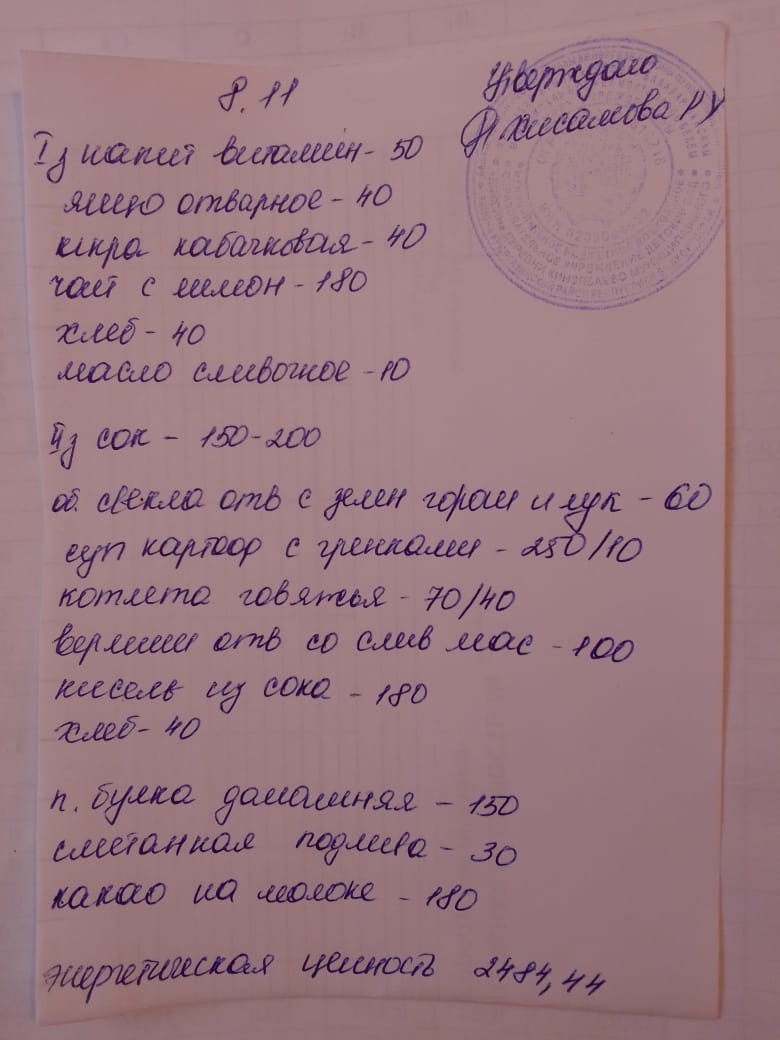 8.11
Утверждаю
Хисамова РХ
Iз напит витамин - 50
яйцо отварное - 40
икра кабачковая - 40
чай с лимон - 180
хлеб - 40
масло сливочное - 10
IIз сок - 150-200
об. свекла отв с зелен горош и лук - 60
суп картоф с гренками - 250/10
котлета говяжья - 70/40
вермиш отв со слив мас - 100
кисель из сока - 180
хлеб - 40
п. булка домашняя - 150
сметанная подлива - 30
какао на молоке - 180
энергетическая ценность 2484,44